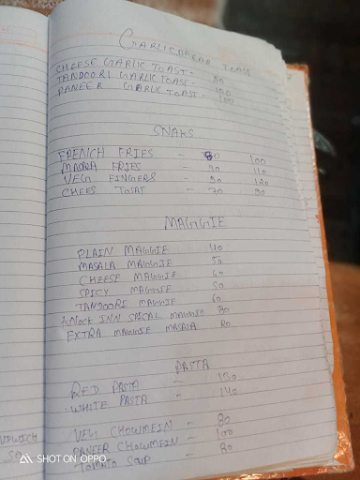 GARLIC BREAD TOAST
CHEESE GARLIC TOAST - 80
TANDOORI GARLIC TOAST - 100
PANEER GARLIC TOAST 100
SNAKS
FRENCH FRIES - 80 100
MASALA FRIES - 90 110
VEG FINGERS - 90 120
CHEES TOAST - 70 90
MAGGIE
PLAIN MAGGIE 40
MASALA MAGGIE 50
CHEESE MAGGIE 60
SPICY MAGGIE 50
TANDOORI MAGGIE 60
INN SPICAL MAGGIE 80
EXTRA MAGGIE MASALA 20
PASTA
RED PASTA - 130
WHITE PASTA - 140
VEG CHOWMEIN - 80
PANEER CHOWMEIN - 100
TOMATO SOUP - 80
SHOT ON OPPO